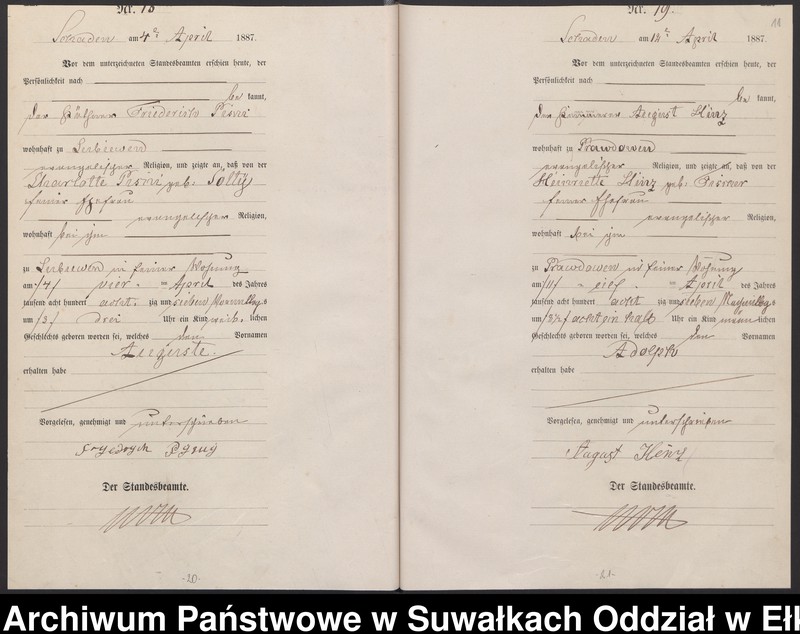 Nr. 18
am 4ten April 1887.
Vor dem unterzeichneten Standesbeamten erschien heute, der
Persönlichkeit nach
be kannt,
der Friederich
wohnhaft zu
evangelischer Religion, und zeigte an, daß von der
Charlotte geb:
seiner Ehefrau
evangelischer Religion,
wohnhaft bei ihm
zu in seiner Wohnung
am /4/ vier = April des Jahres
tausend acht hundert acht. zig und sieben Vormittags
um /3/ drei Uhr ein Kind weib. lichen
Geschlechts geboren worden sei, welches den Vornamen
Auguste.
erhalten habe
Vorgelesen, genehmigt und unterschrieben
Der Standesbeamte.
-20-
Nr. 19.
18
April 1887.
Vor dem unterzeichneten Standesbeamten erschien heute, der
Persönlichkeit nach
be kannt,
der August Hinz
wohnhaft zu Prawdowen
evangelischer Religion, und zeigte an, daß von der
Hinz geb:
seiner Ehefrau
evangelischer Religion,
wohnhaft bei ihm
zu Prawdowen in seiner Wohnung
April des Jahres
tausend acht hundert acht zig und sieben
um acht ein halb Uhr ein Kind männ lichen
Geschlechts geboren worden sei, welches den Vornamen
Adolph
erhalten habe
Vorgelesen, genehmigt und unterschrieben
August Hinz
Der Standesbeamte.
-21-
Archiwum Państwowe w Suwałkach Oddział w Ełk